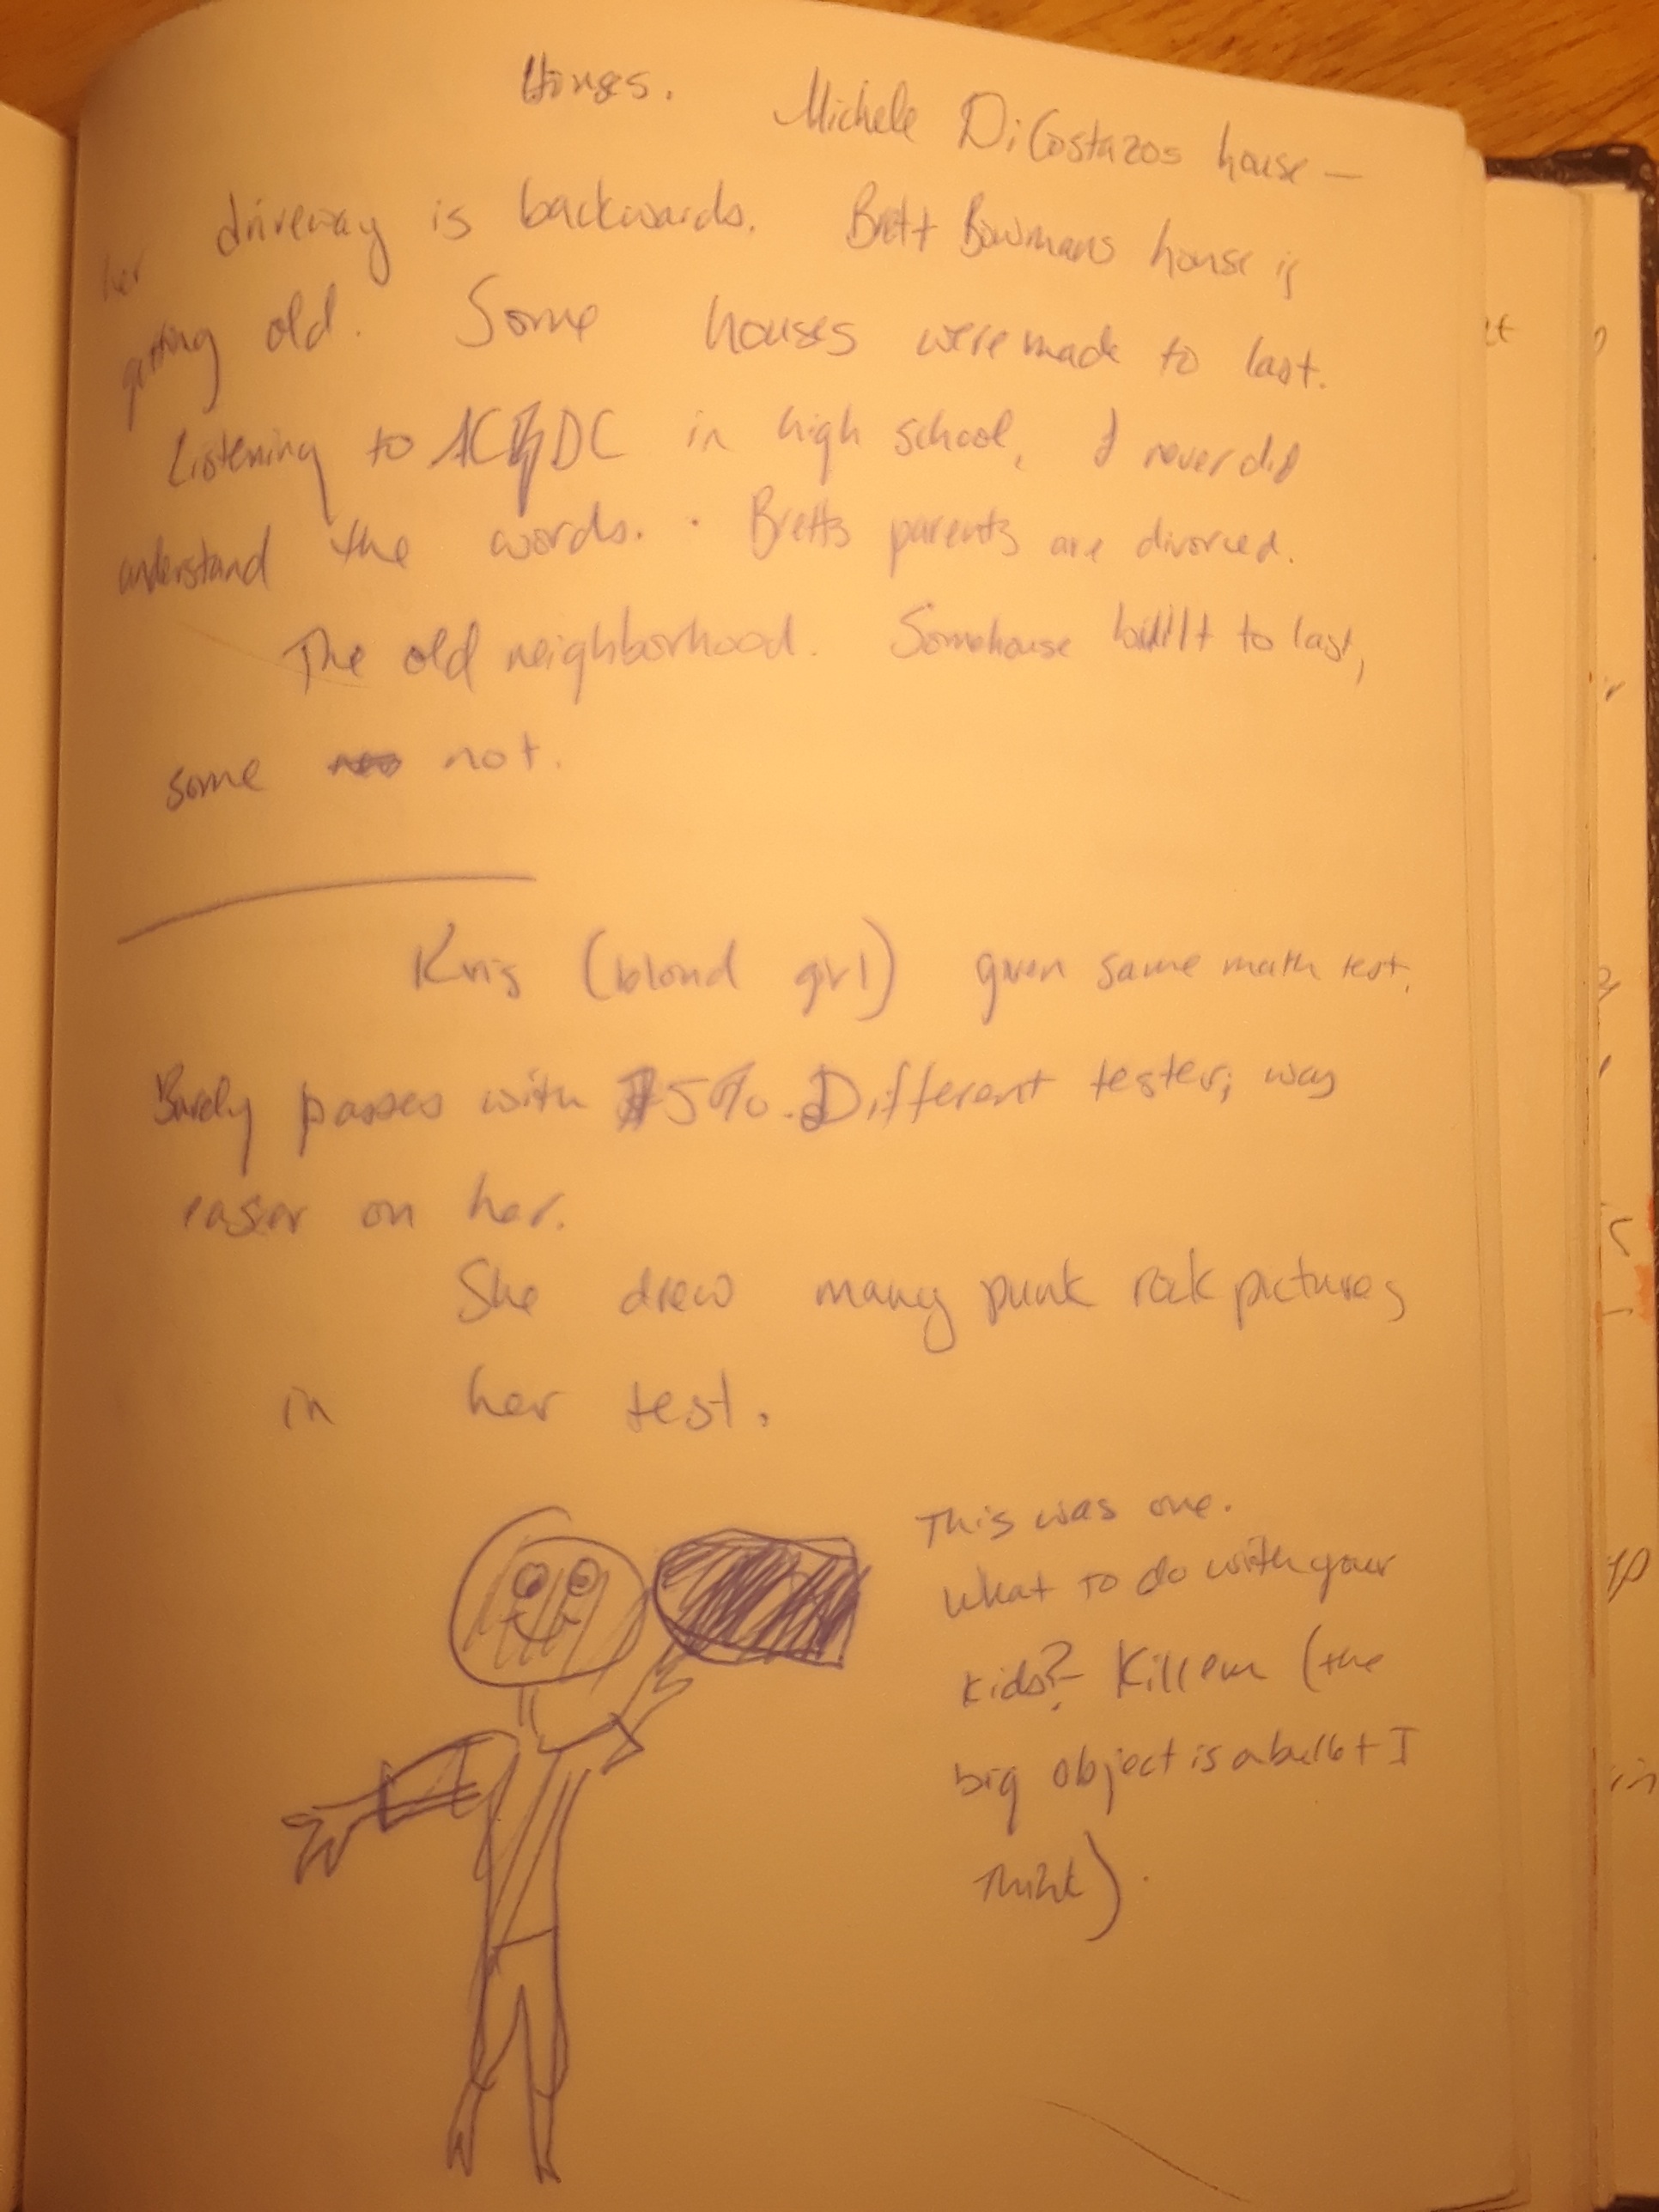 Houses. Michele DiCostazos house —
her driveway is backwards. Brett Bowmans house is
getting old. Some houses were made to last.
Listening to AC/DC in high school, I never did
understand the words. Bretts parents are divorced.
The old neighborhood. Somehouse built to last,
some not.
Kris (blond girl) given same math test.
Barely passes with 5%. Different tester; was
easier on her.
She drew many punk rock pictures
in her test.
This was one.
What to do with your
kids? Kill em (the
big object is a bullet I
think).